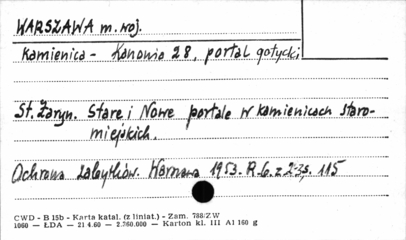 WARSZAWA m. woj.
Kamienica - Kanonia 28, portal gotycki
St. Żaryn. Stare i Nowe portale w kamienicach staro-
miejskich.
Ochrona Zabytków. Warszawa 1953. R.6. z 2-3, s. 115
CWD - B 15b - Karta katal. (z liniat.) - Zam. 788/ZW
1060 — ŁDA — 21.4.60 — 2.760.000 — Karton kl. III A1 160 g